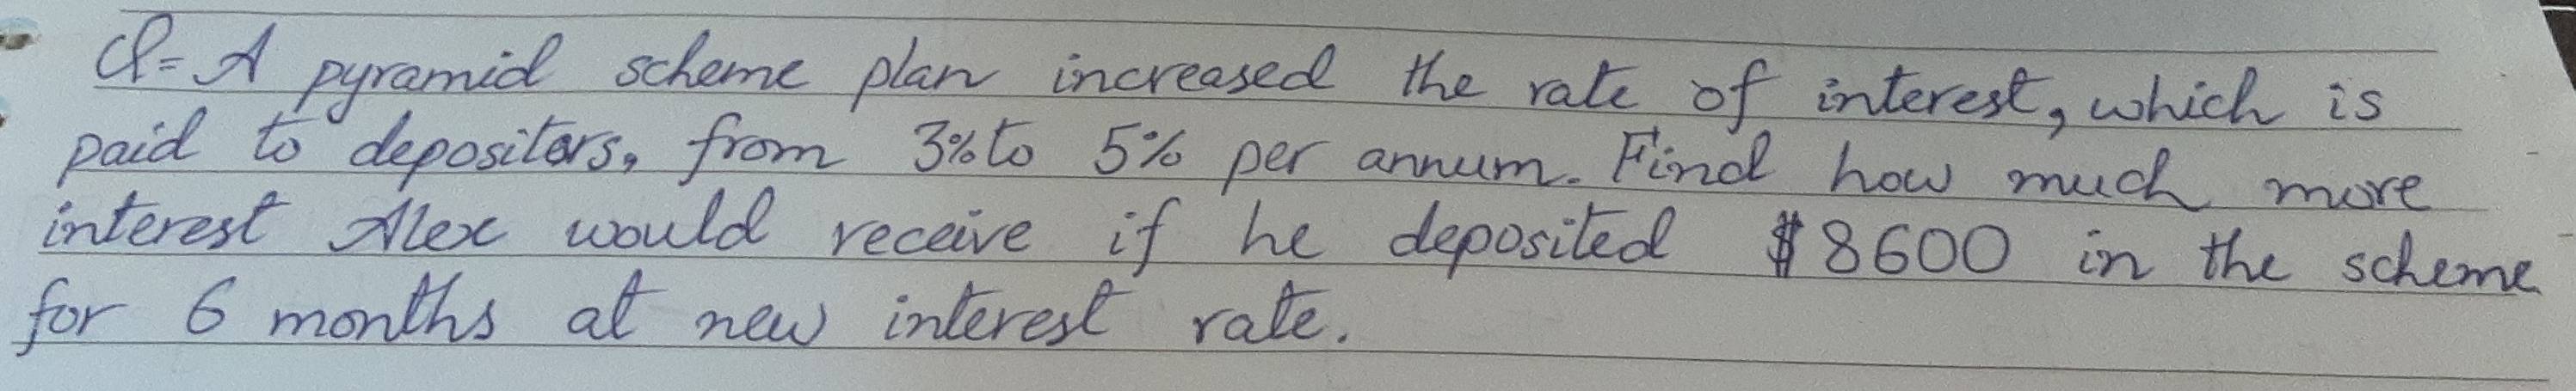 Q= A pyramid scheme plan increased the rate of interest, which is
paid to depositors, from 3% to 5% per annum. Find how much more
interest Alex would receive if he deposited $8600 in the scheme
for 6 months at new interest rate.